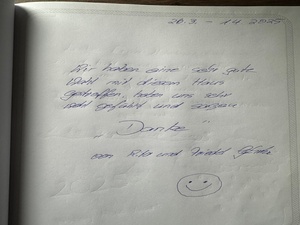 28.3. - 1.4. 2025
Wir haben eine sehr gute
Wahl mit diesem Haus
getroffen, haben uns sehr
wohl gefühlt und sagen
„Danke"
und